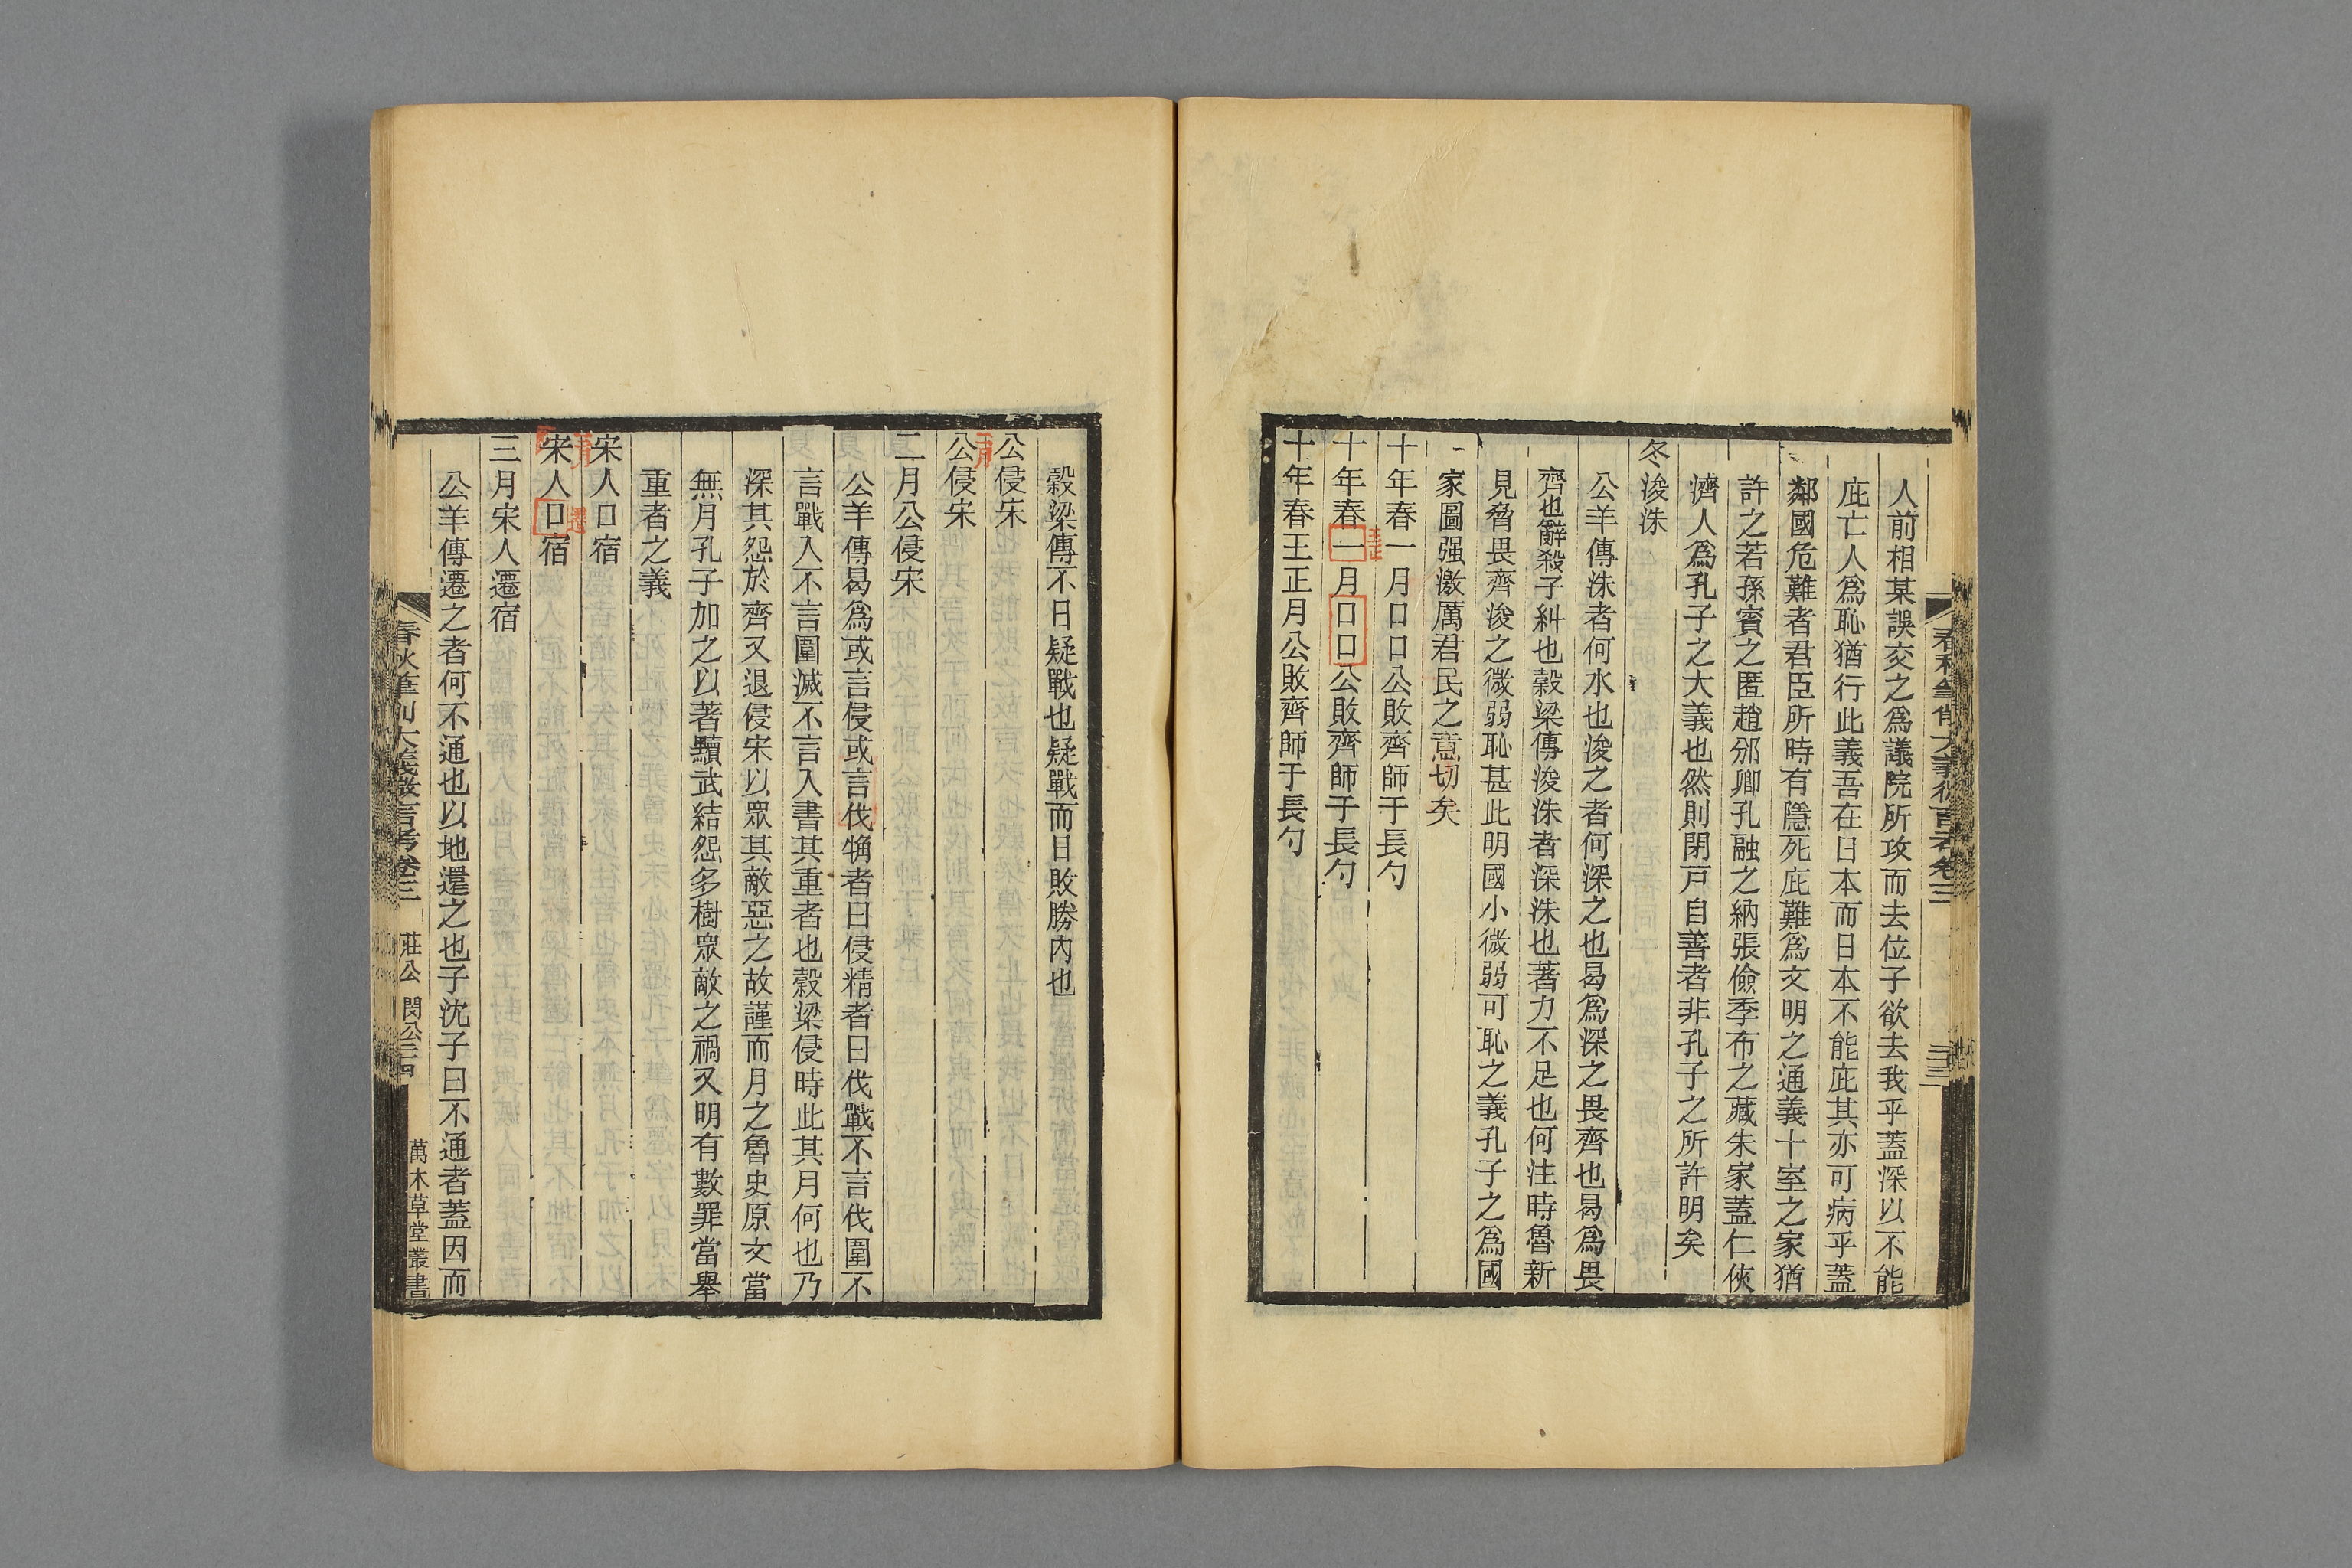 人前相某誤交之爲議院所攻而去位子欲去我乎蓋深以不能
庇亡人爲恥猶行此義吾在日本而日本不能庇其亦可病乎蓋
鄰國危難者君臣所時有隱死庇難爲文明之通義十室之家猶
許之若孫賓之匿趙邠卿孔融之納張儉季布之藏朱家蓋仁俠
濟人爲孔子之大義也然則閉戸自善者非孔子之所許明矣
冬浚洙
公羊傳洙者何水也浚之者何深之也曷爲深之畏齊也曷爲畏
齊也辭殺子糾也穀梁傳浚洙者深洙也著力不足也何注時魯新
見脅畏齊浚之微弱恥甚此明國小微弱可恥之義孔子之爲國
家圖强激厲君民之意切矣
十年春一月口口公敗齊師于長勺
十年春一月口口公敗齊師于長勺
王正
十年春王正月公敗齊師于長勺
春秋筆削大義微言考卷三
穀梁傳不日疑戰也疑戰而曰敗勝內也
公侵宋
二月
公侵宋
二月公侵宋
公羊傳曷爲或言侵或言伐觕者曰侵精者曰伐戰不言伐圍不
言戰入不言圍滅不言入書其重者也穀梁侵時此其月何也乃
深其怨於齊又退侵宋以眾其敵惡之故謹而月之魯史原文當
無月孔子加之以著黷武結怨多樹眾敵之禍又明有數罪當舉
重者之義
宋人口宿
三月
遷
宋人口宿
三月宋人遷宿
公羊傳遷之者何不通也以地還之也子沈子曰不通者蓋因而
春秋筆削大義微言考卷三 莊公 閔公
萬木草堂叢書